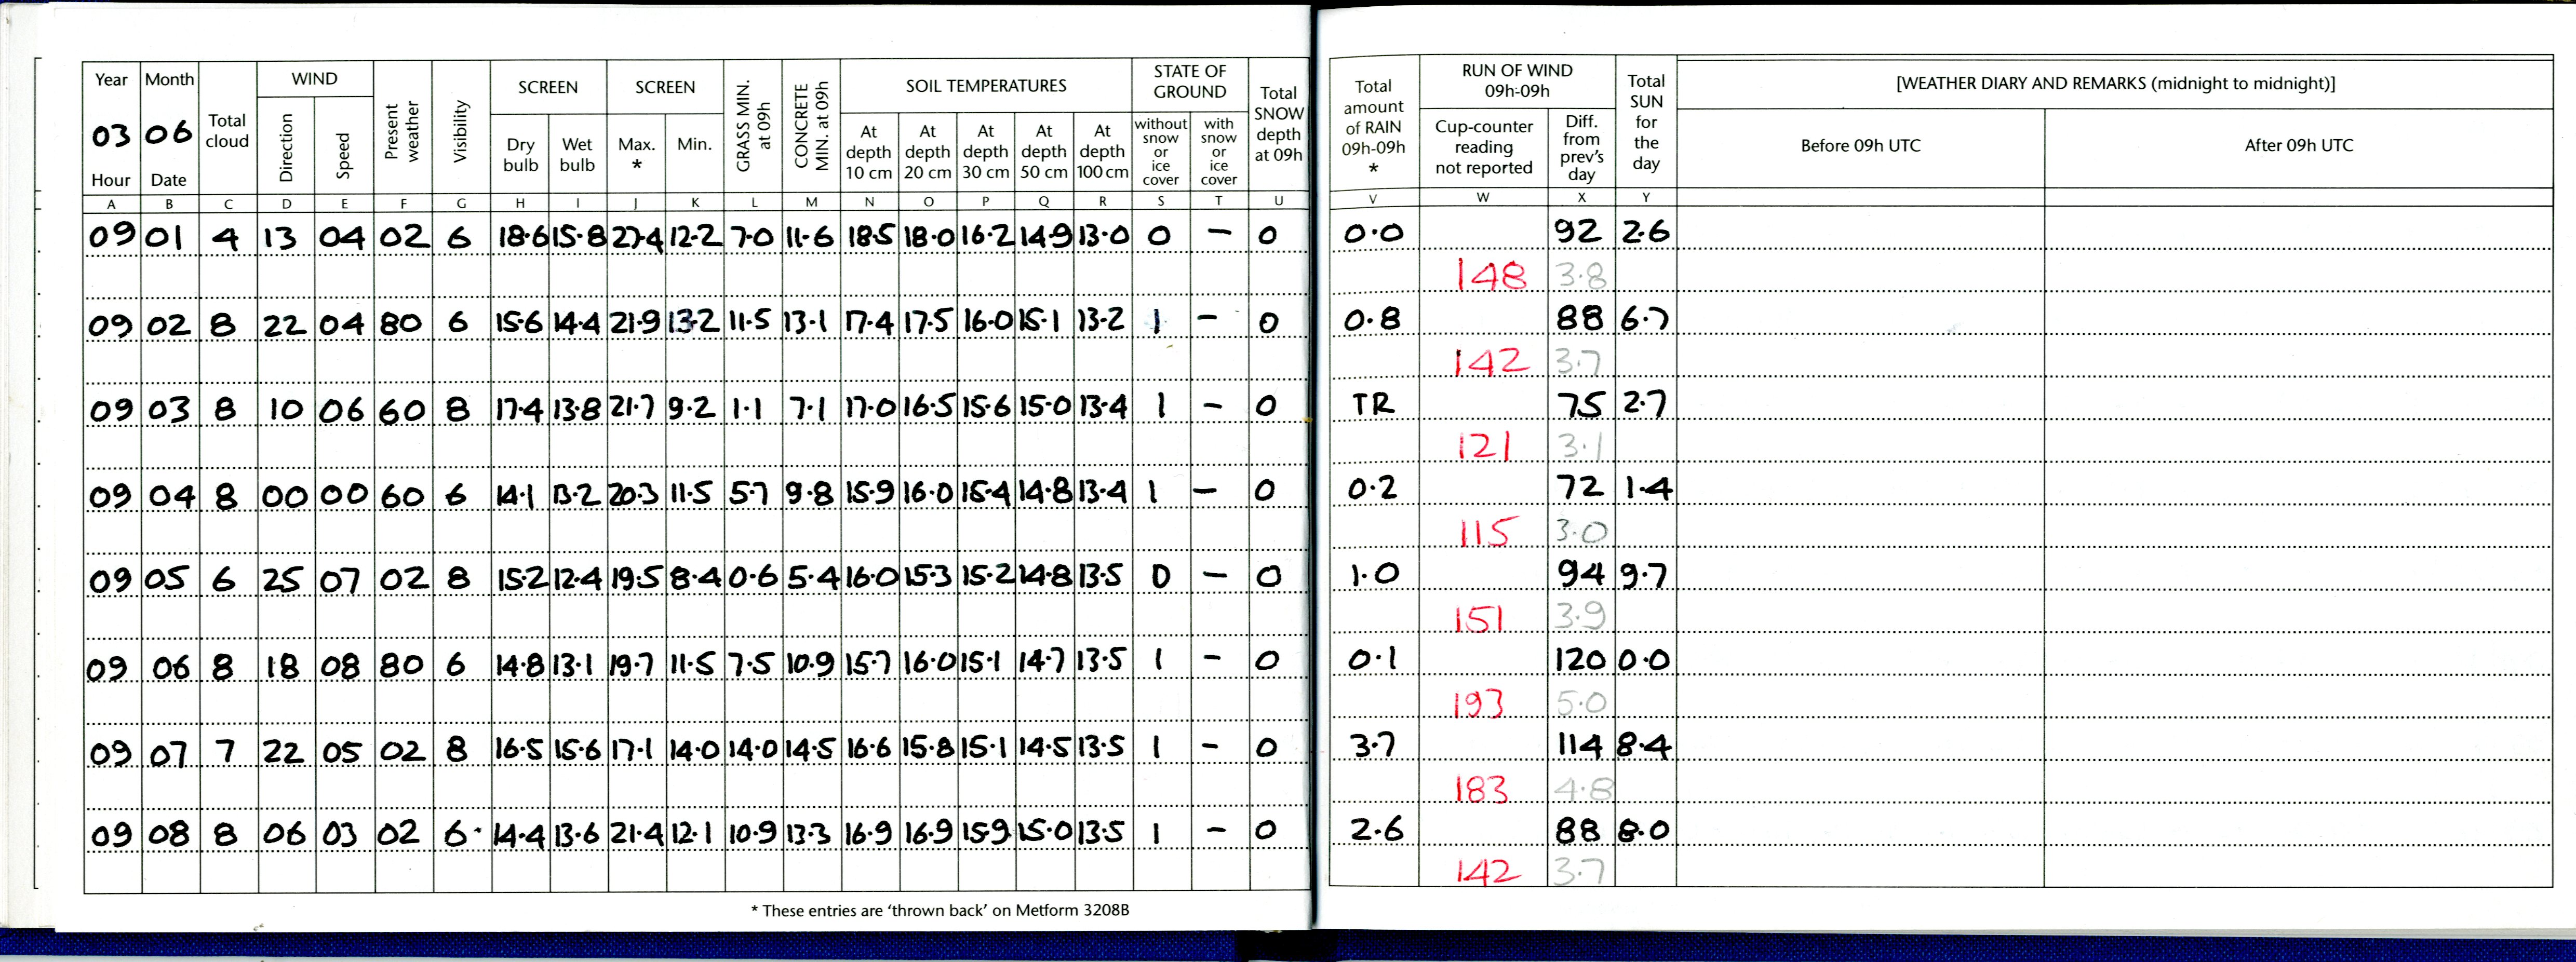 Year Month Total cloud WIND Present weather Visibility SCREEN SCREEN GRASS MIN. at 09h CONCRETE MIN. at 09h SOIL TEMPERATURES STATE OF GROUND Total SNOW depth at 09h Total amount of RAIN 09h-09h * RUN OF WIND 09h-09h Total SUN for the day [WEATHER DIARY AND REMARKS (midnight to midnight)]
03 06 Direction Speed Dry bulb Wet bulb Max. * Min. At depth 10 cm At depth 20 cm At depth 30 cm At depth 50 cm At depth 100 cm without snow or ice cover with snow or ice cover Cup-counter reading not reported Diff. from prev's day Before 09h UTC After 09h UTC
Hour Date
A B C D E F G H I J K L M N O P Q R S T U V W X Y
09 01 4 13 04 02 6 18.6 15.8 27.4 12.2 7.0 11.6 18.5 18.0 16.2 14.9 13.0 0 – 0 0.0 92 2.6
148 3.8
09 02 8 22 04 80 6 15.6 14.4 21.9 13.2 11.5 13.1 17.4 17.5 16.0 15.1 13.2 1 – 0 0.8 88 6.7
142 3.7
09 03 8 10 06 60 8 17.4 13.8 21.7 9.2 1.1 7.1 17.0 16.5 15.6 15.0 13.4 1 – 0 TR 75 2.7
121 3.1
09 04 8 00 00 60 6 14.1 13.2 20.3 11.5 5.7 9.8 15.9 16.0 15.4 14.8 13.4 1 – 0 0.2 72 1.4
115 3.0
09 05 6 25 07 02 8 15.2 12.4 19.5 8.4 0.6 5.4 16.0 15.3 15.2 14.8 13.5 0 – 0 1.0 94 9.7
151 3.9
09 06 8 18 08 80 6 14.8 13.1 19.7 11.5 7.5 10.9 15.7 16.0 15.1 14.7 13.5 1 – 0 0.1 120 0.0
193 5.0
09 07 7 22 05 02 8 16.5 15.6 17.1 14.0 14.0 14.5 16.6 15.8 15.1 14.5 13.5 1 – 0 3.7 114 8.4
183 4.8
09 08 8 06 03 02 6 14.4 13.6 21.4 12.1 10.9 13.3 16.9 16.9 15.9 15.0 13.5 1 – 0 2.6 88 8.0
142 3.7
* These entries are 'thrown back' on Metform 3208B